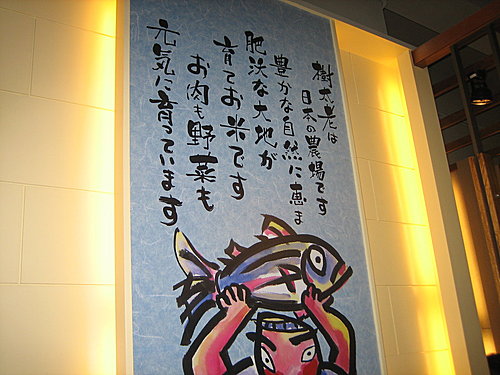 樹太老は
日本の農場です
豊かな自然に恵ま
肥沃な大地が
育てお米です
お肉も野菜も
元気に育っています